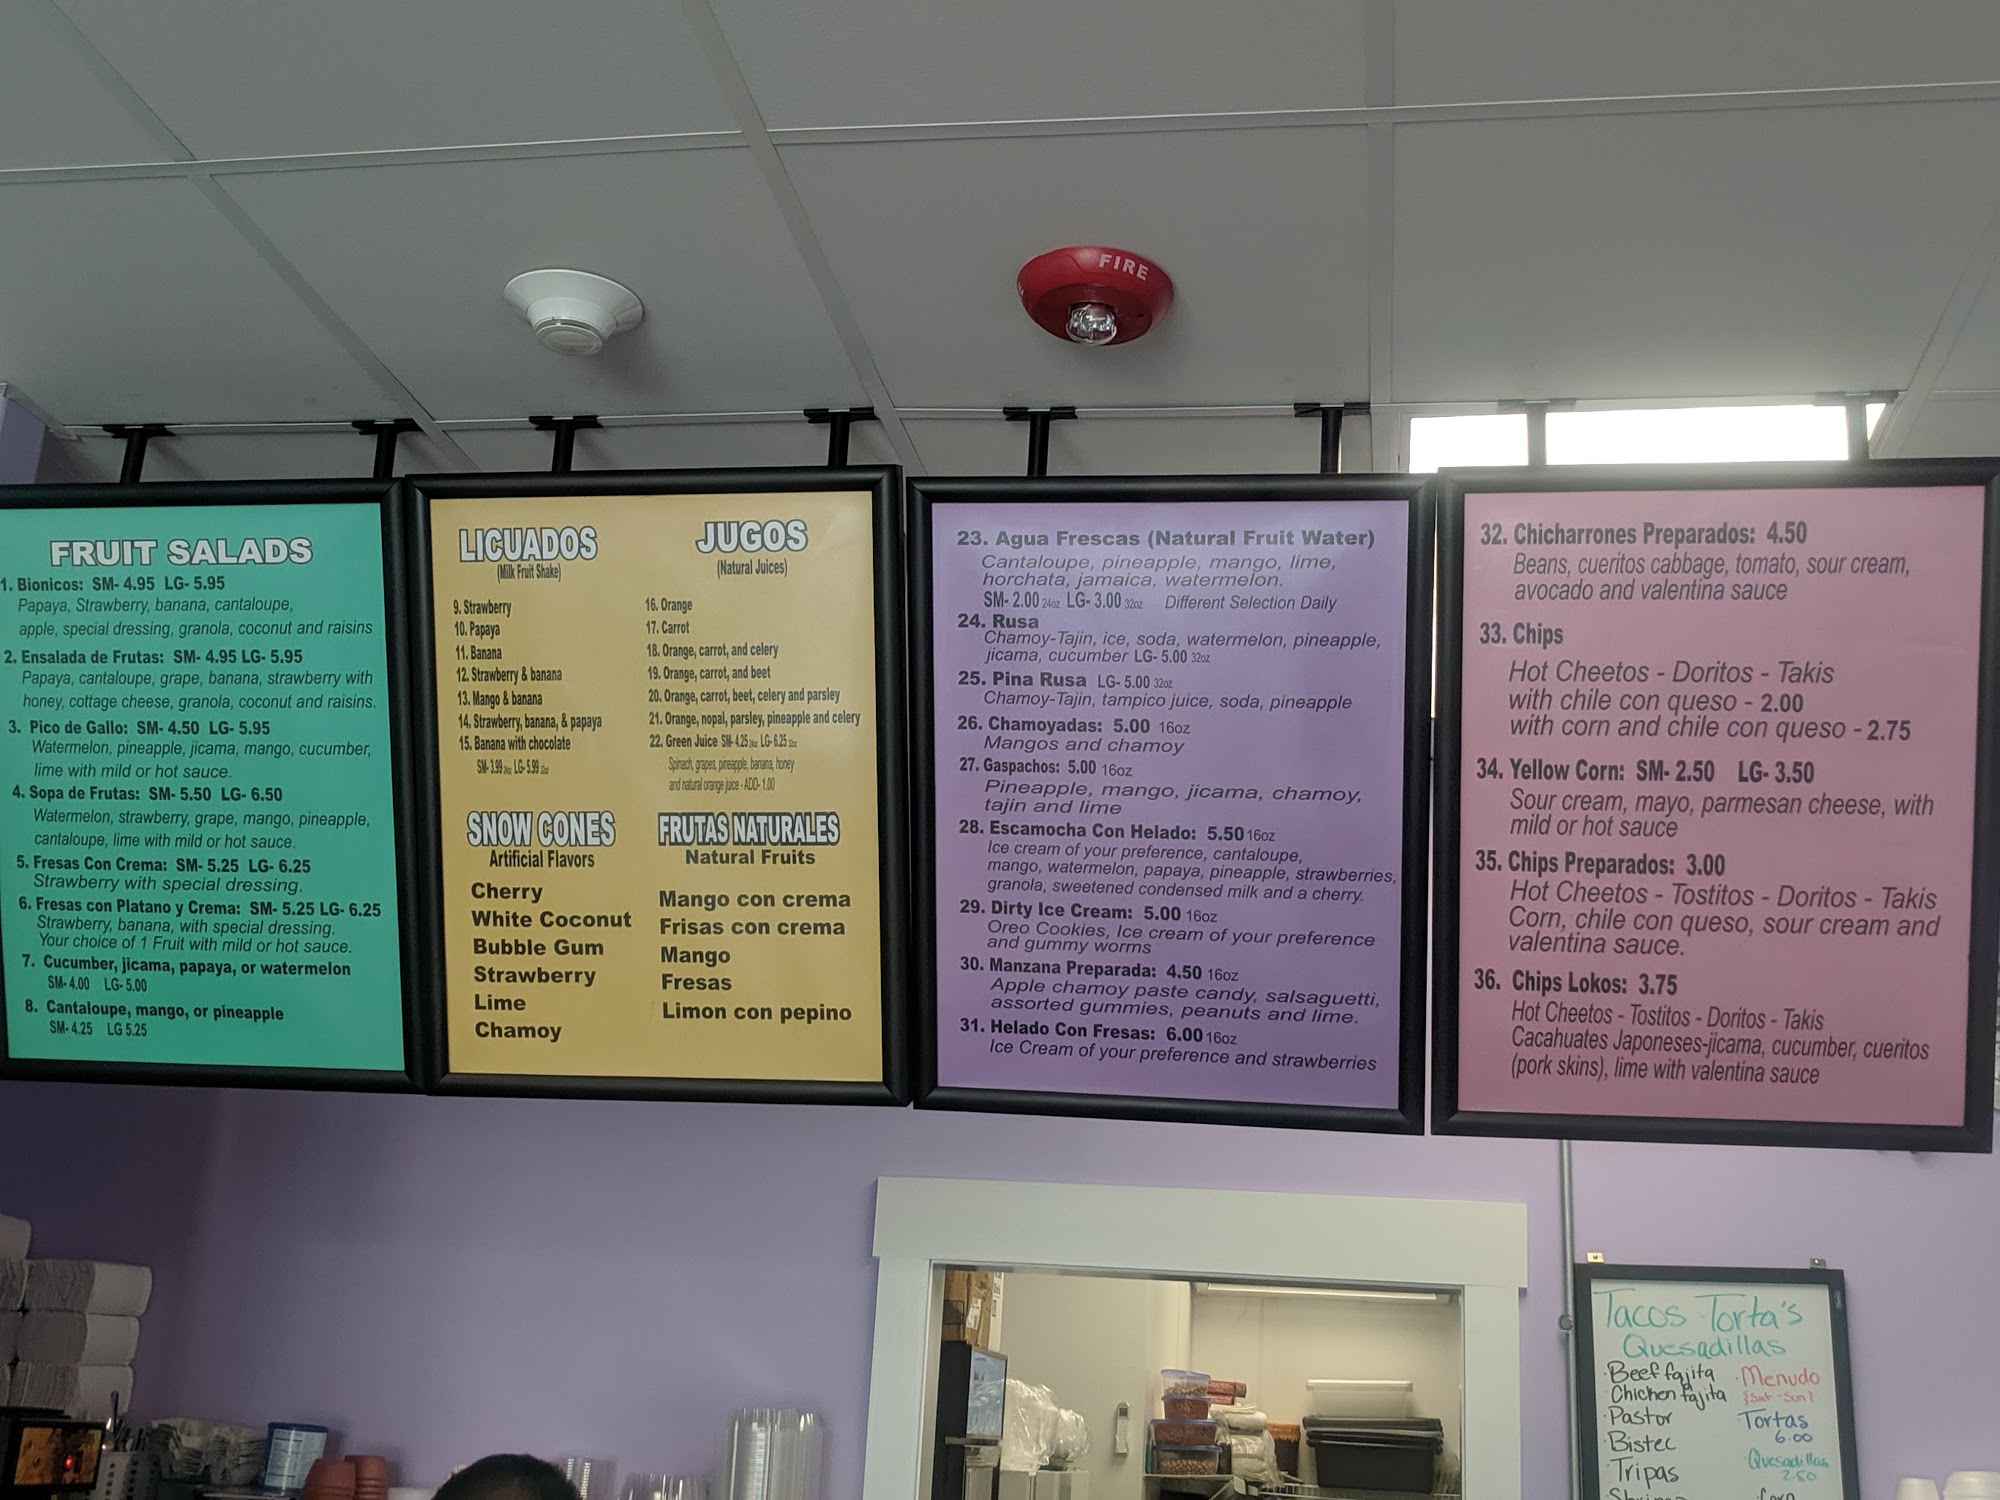 FIRE
FRUIT SALADS
1. Bionicos: SM- 4.95 LG- 5.95
Papaya, Strawberry, banana, cantaloupe,
apple, special dressing, granola, coconut and raisins
2. Ensalada de Frutas: SM- 4.95 LG- 5.95
Papaya, cantaloupe, grape, banana, strawberry with
honey, cottage cheese, granola, coconut and raisins.
3. Pico de Gallo: SM- 4.50 LG- 5.95
Watermelon, pineapple, jicama, mango, cucumber,
lime with mild or hot sauce.
4. Sopa de Frutas: SM- 5.50 LG- 6.50
Watermelon, strawberry, grape, mango, pineapple,
cantaloupe, lime with mild or hot sauce.
5. Fresas Con Crema: SM- 5.25 LG- 6.25
Strawberry with special dressing.
6. Fresas con Platano y Crema: SM- 5.25 LG- 6.25
Strawberry, banana, with special dressing.
Your choice of 1 Fruit with mild or hot sauce.
7. Cucumber, jicama, papaya, or watermelon
SM- 4.00 LG- 5.00
8. Cantaloupe, mango, or pineapple
SM- 4.25 LG 5.25
LICUADOS
(Milk Fruit Shake)
9. Strawberry
10. Papaya
11. Banana
12. Strawberry & banana
13. Mango & banana
14. Strawberry, banana, & papaya
15. Banana with chocolate
SM- 3.99 24oz LG- 5.99 32oz
JUGOS
(Natural Juices)
16. Orange
17. Carrot
18. Orange, carrot, and celery
19. Orange, carrot, and beet
20. Orange, carrot, beet, celery and parsley
21. Orange, nopal, parsley, pineapple and celery
22. Green Juice SM- 4.25 24oz LG- 6.25 32oz
Spinach, grapes, pineapple, banana, honey
and natural orange juice - ADD- 1.00
SNOW CONES
Artificial Flavors
Cherry
White Coconut
Bubble Gum
Strawberry
Lime
Chamoy
FRUTAS NATURALES
Natural Fruits
Mango con crema
Frisas con crema
Mango
Fresas
Limon con pepino
23. Agua Frescas (Natural Fruit Water)
Cantaloupe, pineapple, mango, lime,
horchata, jamaica, watermelon.
SM- 2.00 24oz LG- 3.00 32oz Different Selection Daily
24. Rusa
Chamoy-Tajin, ice, soda, watermelon, pineapple,
jicama, cucumber LG- 5.00 32oz
25. Pina Rusa LG- 5.00 32oz
Chamoy-Tajin, tampico juice, soda, pineapple
26. Chamoyadas: 5.00 16oz
Mangos and chamoy
27. Gaspachos: 5.00 16oz
Pineapple, mango, jicama, chamoy,
tajin and lime
28. Escamocha Con Helado: 5.50 16oz
Ice cream of your preference, cantaloupe,
mango, watermelon, papaya, pineapple, strawberries,
granola, sweetened condensed milk and a cherry.
29. Dirty Ice Cream: 5.00 16oz
Oreo Cookies, Ice cream of your preference
and gummy worms
30. Manzana Preparada: 4.50 16oz
Apple chamoy paste candy, salsaguetti,
assorted gummies, peanuts and lime.
31. Helado Con Fresas: 6.00 16oz
Ice Cream of your preference and strawberries
32. Chicharrones Preparados: 4.50
Beans, cueritos cabbage, tomato, sour cream,
avocado and valentina sauce
33. Chips
Hot Cheetos - Doritos - Takis
with chile con queso - 2.00
with corn and chile con queso - 2.75
34. Yellow Corn: SM- 2.50 LG- 3.50
Sour cream, mayo, parmesan cheese, with
mild or hot sauce
35. Chips Preparados: 3.00
Hot Cheetos - Tostitos - Doritos - Takis
Corn, chile con queso, sour cream and
valentina sauce.
36. Chips Lokos: 3.75
Hot Cheetos - Tostitos - Doritos - Takis
Cacahuates Japoneses-jicama, cucumber, cueritos
(pork skins), lime with valentina sauce
Tacos Torta's
Quesadillas
Beef fajita
Chicken fajita
Pastor
Bistec
Tripas
Menudo
{Sat - Sun}
Tortas
6.00
Quesadillas
2.50